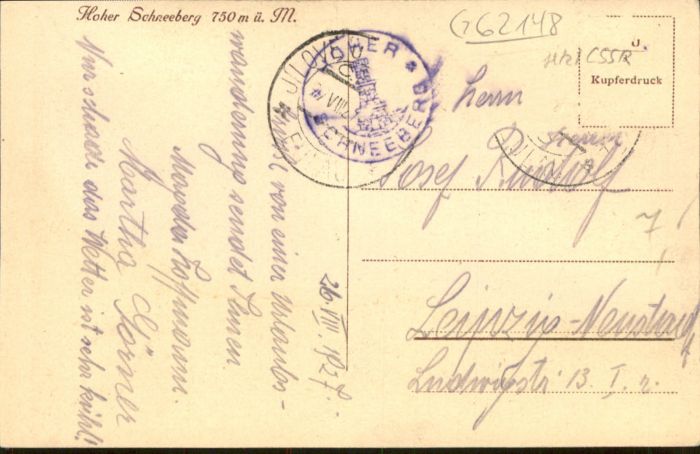 Hoher Schneeberg 750 m ü. M.
G62148
jetzt CSSR
Kupferdruck
JÍLOVÉ
HOHER
SCHNEEBERG
VIII
26. VIII. 1937.
von einer Urlaubs-
wanderung sendet Ihnen
Hoffmann.
Martha Görner
Nur schade das Wetter ist sehr kühl!
Herrn
Josef Rudolf
Leipzig-Neustadt
Ludwigstr. 13. I. r.
7